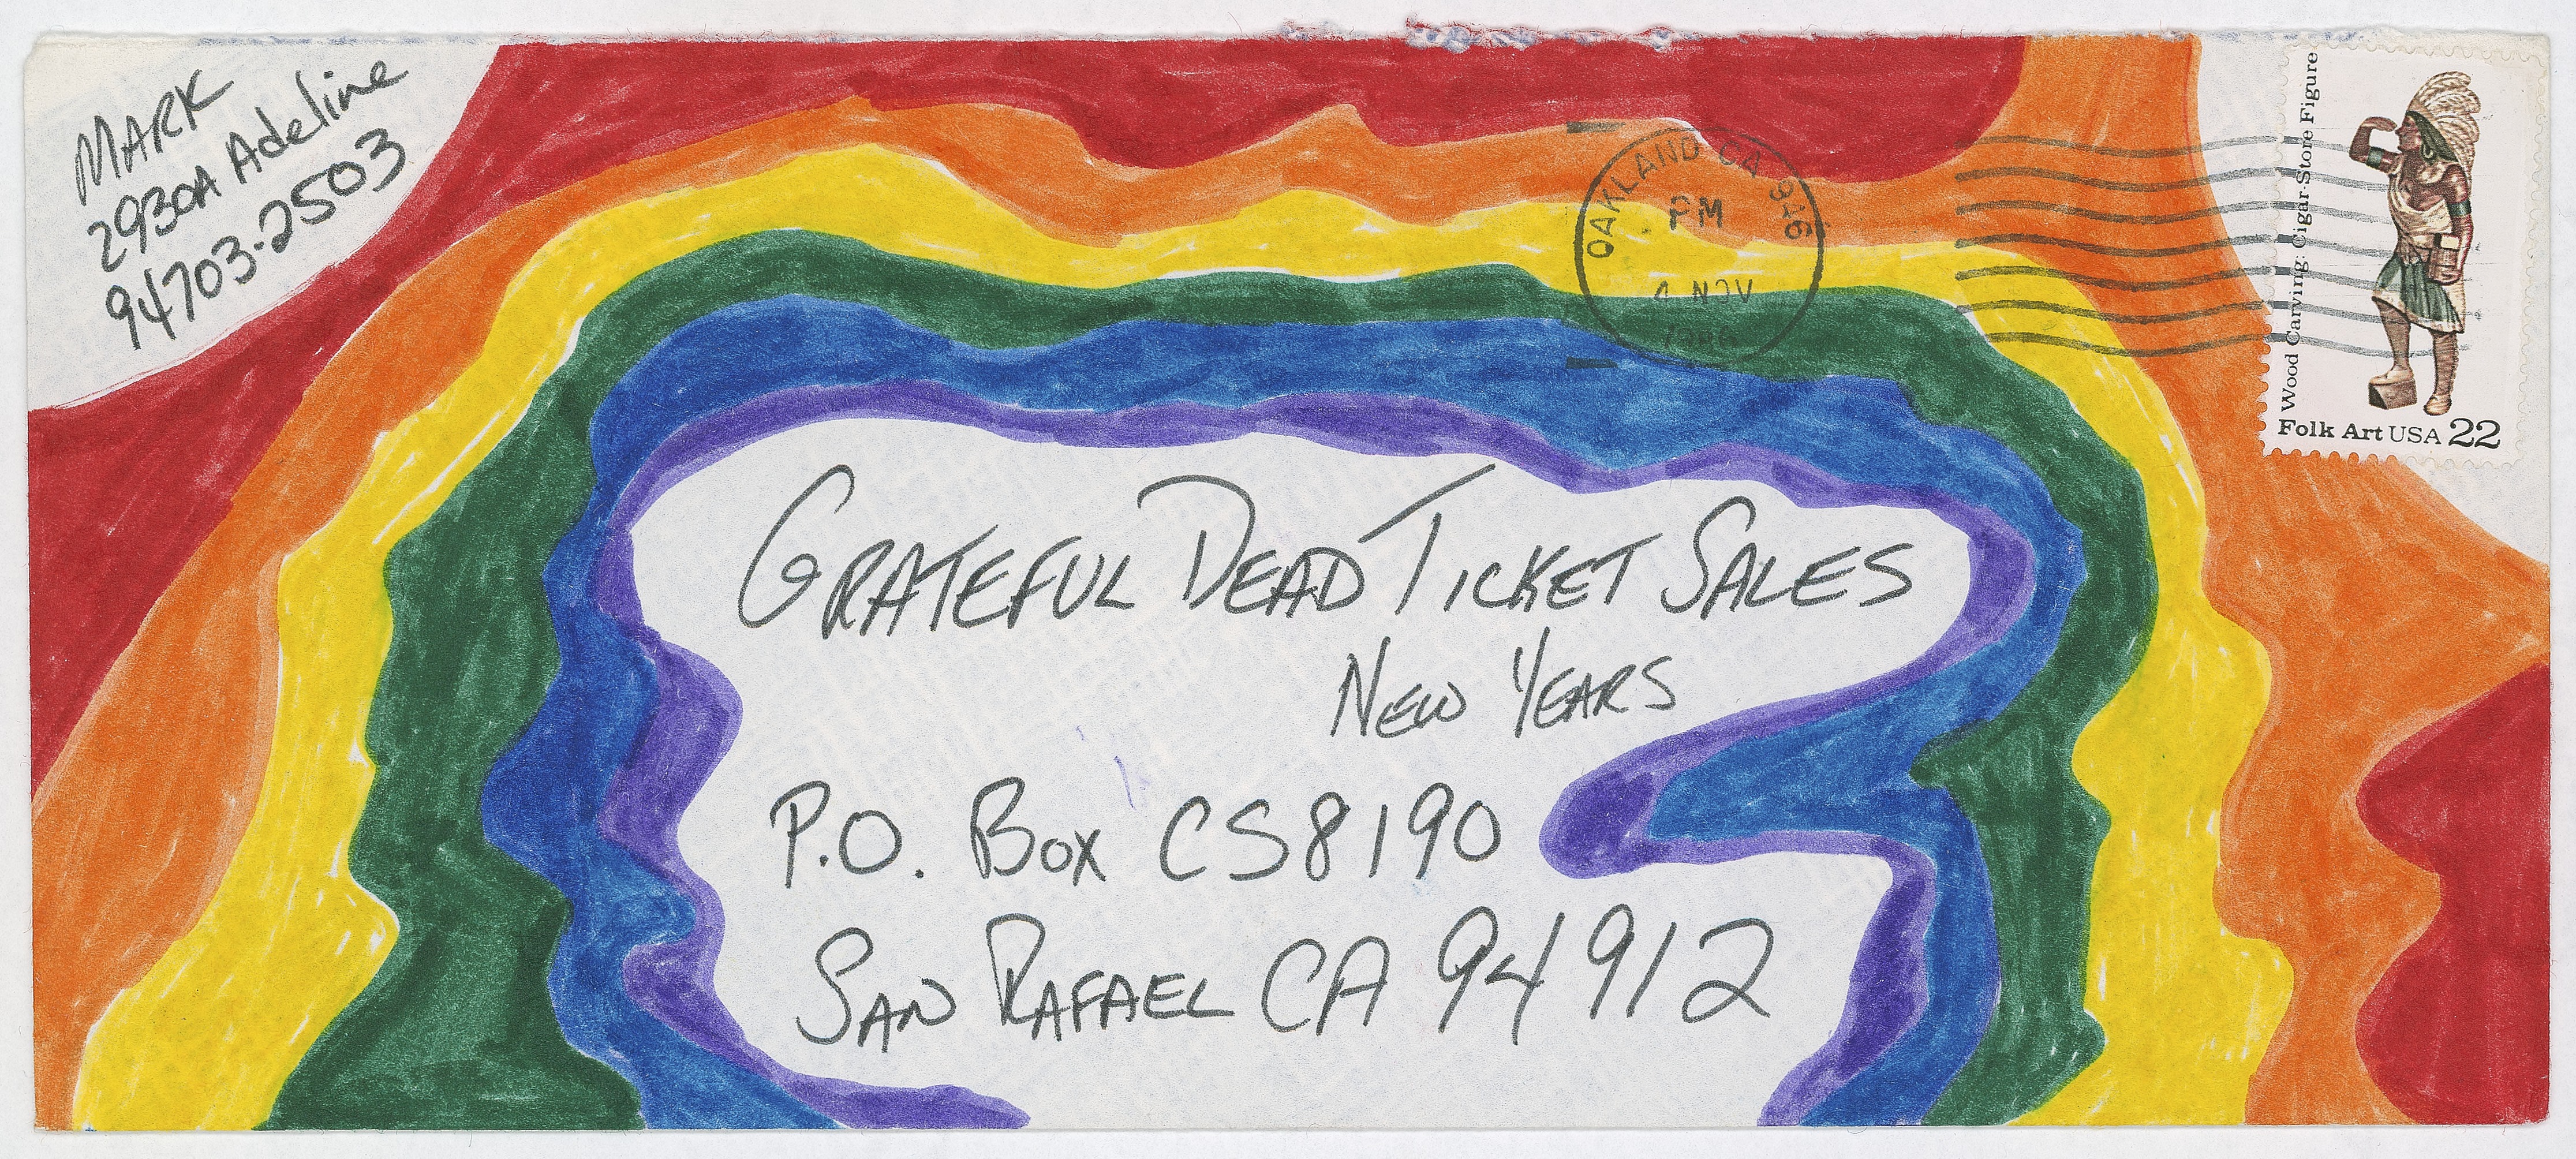 MARK
2930A Adeline
94703-2503
OAKLAND CA 946
PM
4 NOV
Wood Carving: Cigar-Store Figure
Folk Art USA 22
GRATEFUL DEAD TICKET SALES
NEW YEARS
P.O. BOX CS8190
SAN RAFAEL CA 94912